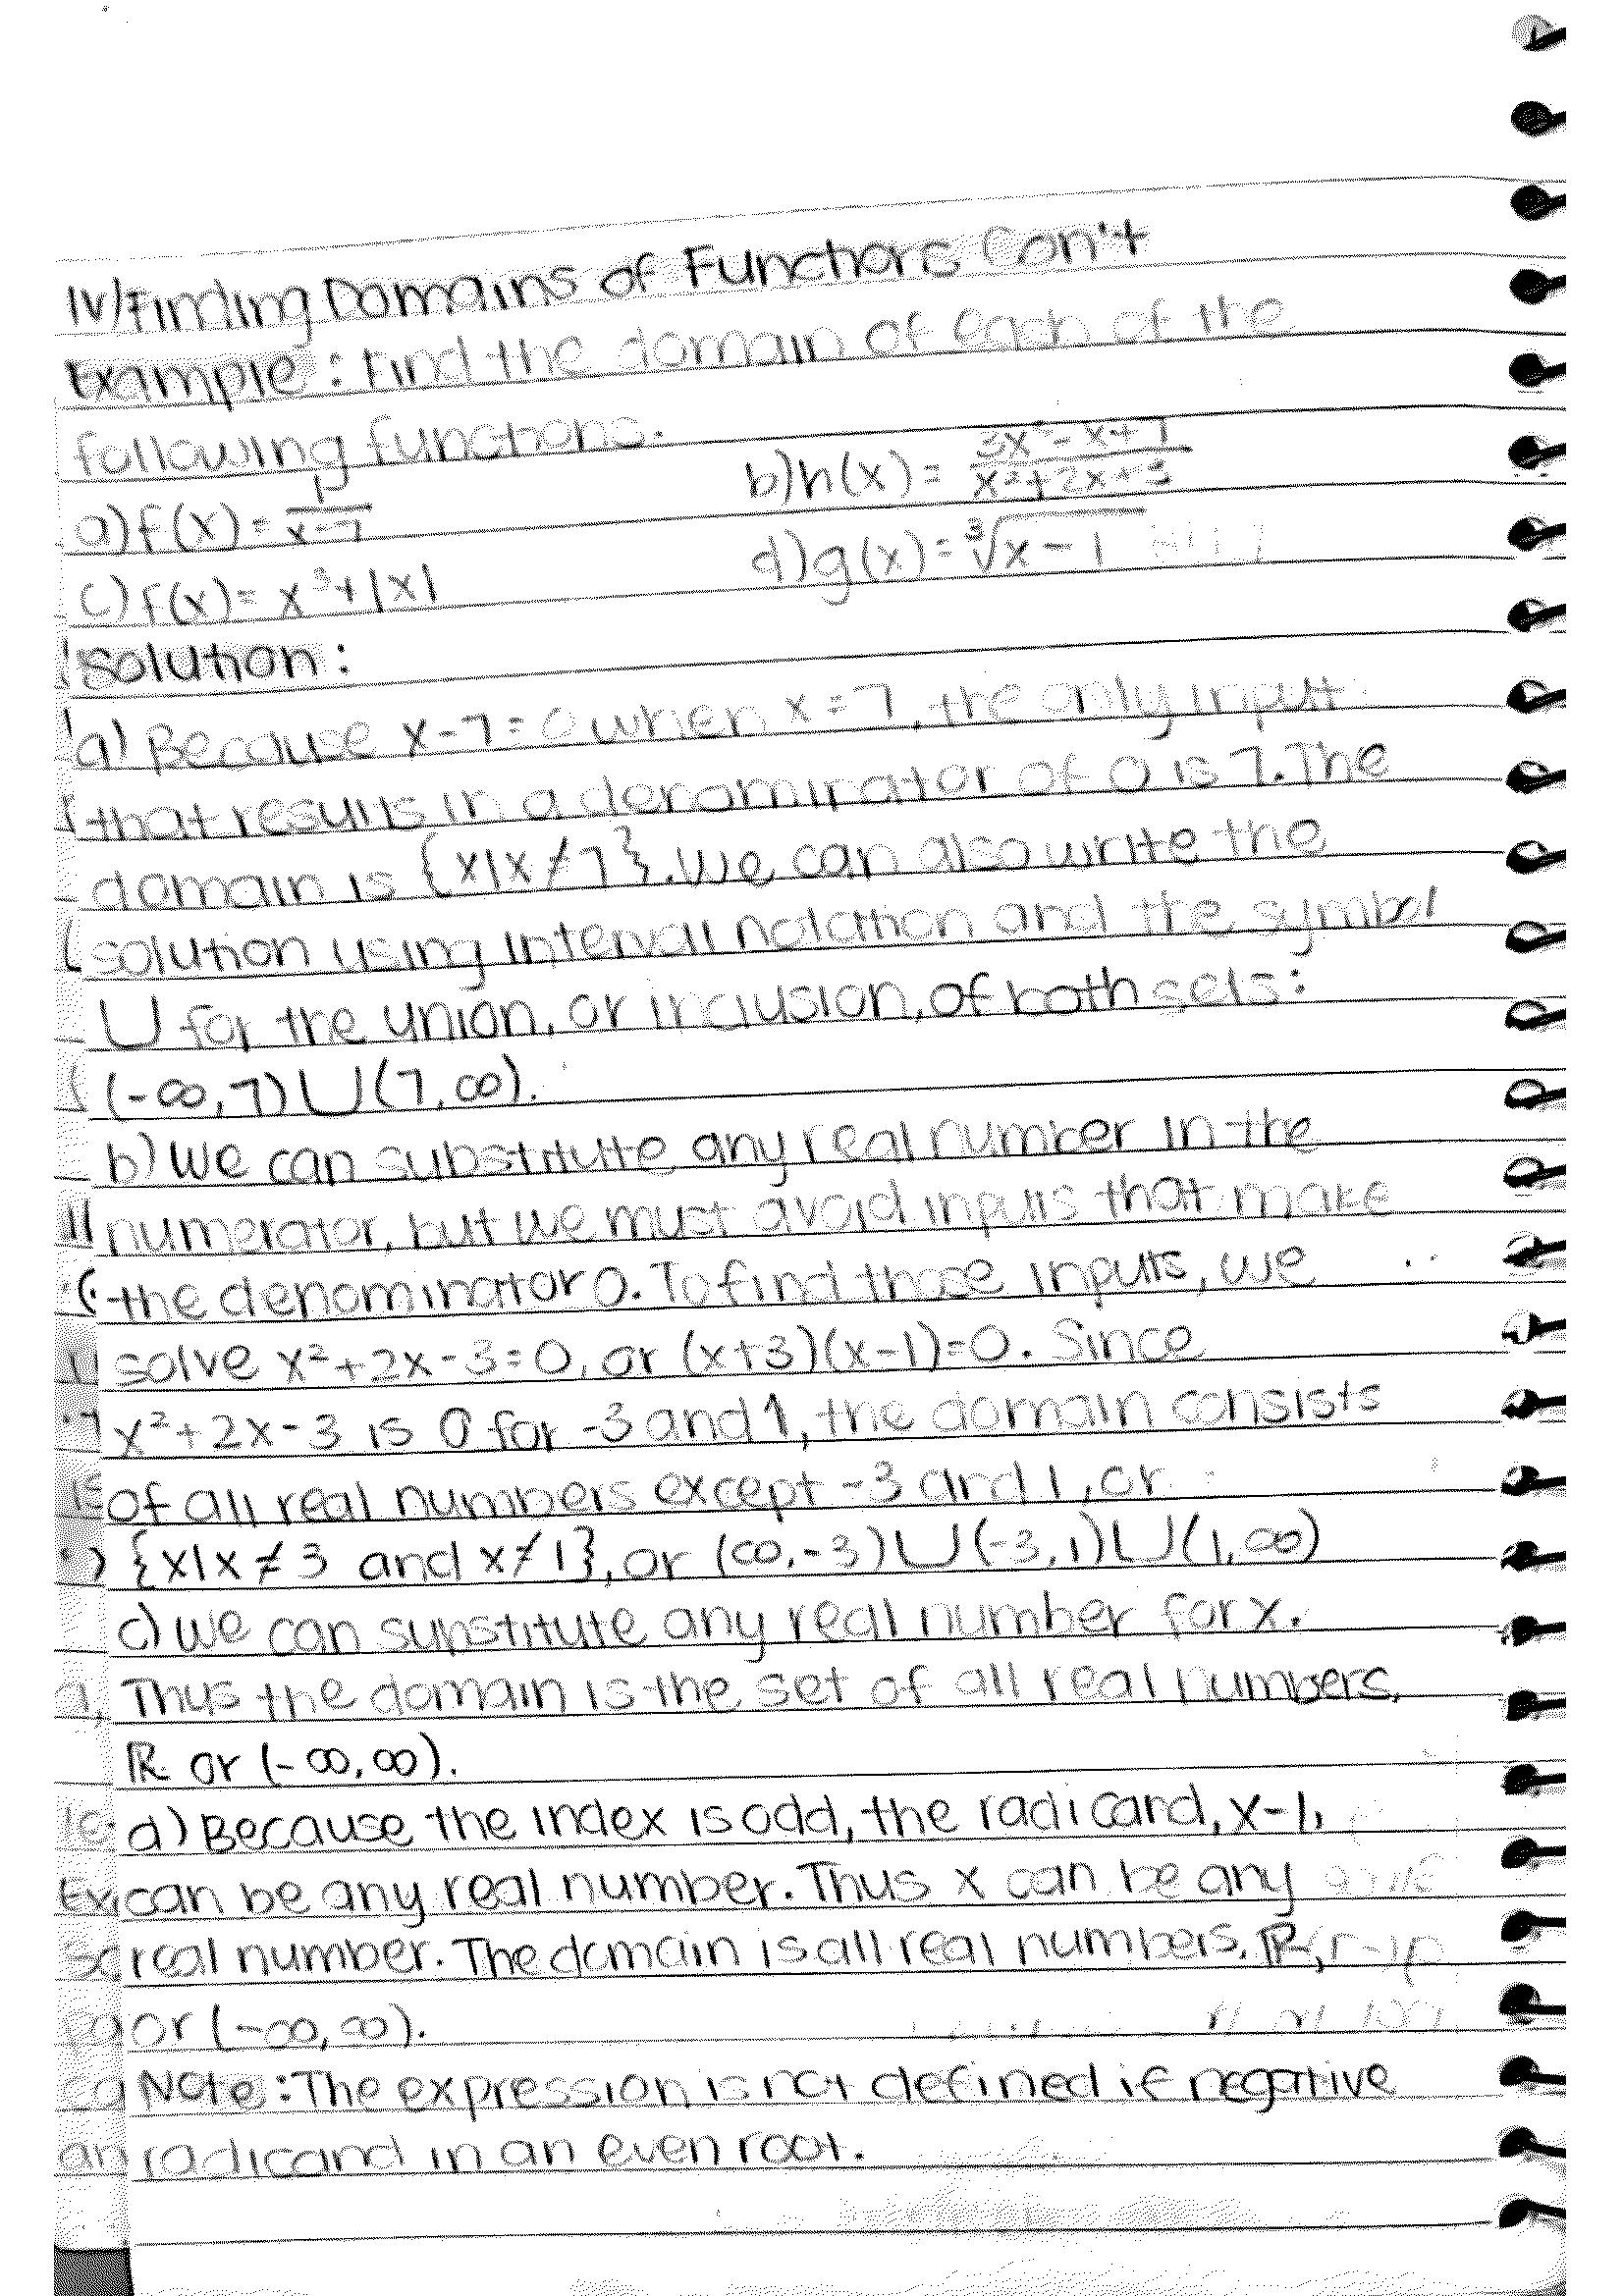 IV) Finding Domains of Functions Con't
Example: Find the domain of each of the
following functions.
a) f(x) = 1/(x-7)
b) h(x) = (3x²-x+7)/(x²+2x+3)
c) f(x) = x³+|x|
d) g(x) = ∛(x-1)
Solution:
a) Because x-7=0 when x=7, the only input
that results in a denominator of 0 is 7. The
domain is {x|x≠7}. We can also write the
solution using interval notation and the symbol
U for the union, or inclusion, of both sets:
(-∞,7)U(7,∞).
b) We can substitute any real number in the
numerator, but we must avoid inputs that make
the denominator 0. To find those inputs, we
solve x²+2x-3=0, or (x+3)(x-1)=0. Since
x²+2x-3 is 0 for -3 and 1, the domain consists
of all real numbers except -3 and 1, or
{x|x≠3 and x≠1}, or (∞,-3)U(-3,1)U(1,∞)
c) We can substitute any real number for x.
Thus the domain is the set of all real numbers,
ℝ or (-∞,∞).
d) Because the index is odd, the radicand, x-1,
can be any real number. Thus x can be any
real number. The domain is all real numbers, ℝ,
or (-∞,∞).
Note: The expression is not defined if negative
radicand in an even root.